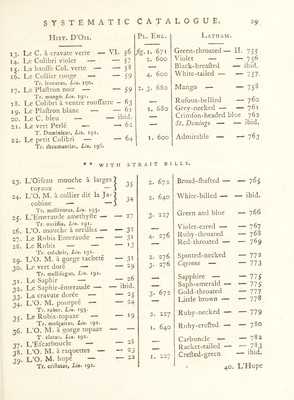 SYSTEMATIC CATALOGUE. 29
HIST. D'OIS. PL. ENL. LATHAM.
13. Le C. à cravate verte — VI. 56 fig. 1. 671 Green-throated — II. 755
14. Le Colibri violet — — 57 2. 600 Violet — — 756
15. La hausse Col. verte — — 58 Black-breasted — ibid.
16. Le Collier rouge — — 59 4. 600 White-tailed — — 757
Tr. leucurus, Lin. 190.
17. Le Plastron noir — — 59 2. 3. 680 Mango — — 758
Tr. mango, Lin. 191.
18. Le Colibri à ventre rouffatre - 63 Rufous-bellied — 760
19. Le Plastron blanc — — 61 1. 680 Grey-necked — — 761
20. Le C. bleu — — ibid. Crimson-headed blue 762
21. Le vert Perlé — — 62 St. Domingo — — ibid.
T. Dominicus, Lin. 191.
22. Le petit Colibri — — 64 1. 600 Admirable — — 763
Tr. thaumantias, Lin. 196.
** WITH STRAIT BILLS.
23. L'Oiseau mouche à larges tuyaux — — 35 2. 672 Broad-shafted — — 765
24. L'O. M. à collier dit la Jacobine — — 34 2. 640 White-billed — — ibid.
Tr. mellivorus, Lin. 193.
25. L'Emeraude amethyste — 27 3. 227 Green and blue — 766
Tr. ourissia, Lin. 191.
26. L'O. mouche à oreilles — — 32 Violet-eared — — 767
27. Le Rubis Emeraude — — 31 4. 276 Ruby-throated — — 768
28. Le Rubis — — 13 Red-throated — — 769
Tr. colubris, Lin. 191.
29. L'O. M. à gorge tacheté — 31 2. 276 Spotted-necked — 772
30. Le vert doré — — 29 3. 276 Cayenne — — 773
Tr. mellisugus, Lin. 192.
31. Le Saphir — — 26 Sapphire — — 775
32. Le Saphir-émeraude — — ibid. Saph-emerald — — 775
33. La cravate dorée — — 25 3. 672 Gold-throated — — 777
34. L'O. M. pourpré — — 24 Little brown — — 778
Tr. ruber, Lin. 193.
35. Le Rubis-topaze — — 19 2. 227 Ruby-necked — — 779
Tr. moschitus, Lin. 192.
36. L'O. M. à gorge topaze — 1. 640 Ruby-crested — — 780
T. elatus, Lin. 192.
37. L'Escarboucle — — 28 Carbuncle — — 782
38. L'O. M. à raquettes — — 23 Racket-tailed — — 783
39. L'O. M. hupé — — 22 1. 227 Crested-green — ibid.
Tr. cristatus, Lin. 192.
40. L'Hupe